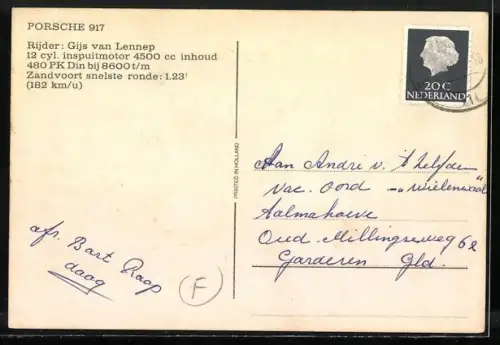 PORSCHE 917
Rijder: Gijs van Lennep
12 cyl. inspuitmotor 4500 cc inhoud
480 PK Din bij 8600 t/m
Zandvoort snelste ronde: 1.23'
(182 km/u)
20C
NEDERLAND
PRINTED IN HOLLAND
Aan André v. 't
Vac. Oord -"Wielewaal"
Aalmahoeve
Oud Millingseweg 62
Garderen Gld.
afz. Bart Raap
daag
F